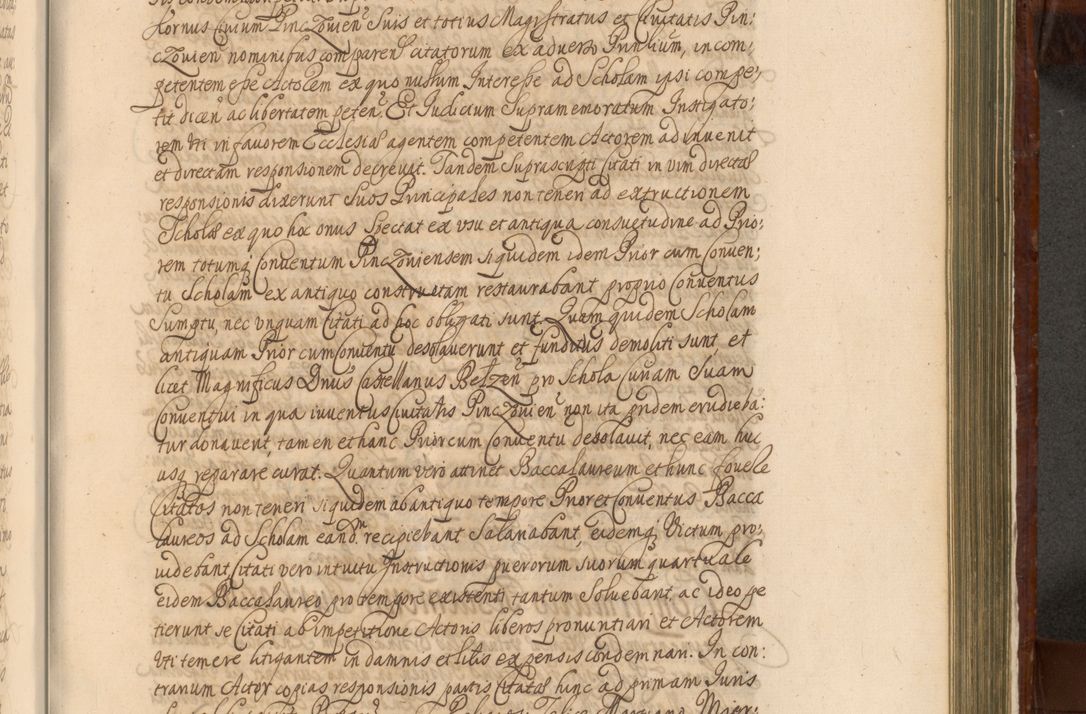 Hornus Civium Pinczovien Suis et totius Magistratus et Civitatis Pin:
czovien nominibus comparen citatorum ex adverso Punlium, incom:
petentem esse Actorem ex quo nullum Interesse ad Scholam ipsi compe:
tit dicen ac libertatem peten. Et Judicium Supramemoratum Instigato:
rem uti in favorem Ecclesiæ agentem competentem Actorem adinvenit
et directam responsionem decrevit. Tandem Suprascripti Citati in vim directæ
responsionis dixerunt Suos Principales non teneri ad extructionem
Scholæ ex quo hoc onus Spectat ex usu et antiqua consuetudine ad Prio:
rem totumq Conventum Pinczoviensem siquidem idem Prior cum Conven:
tu Scholam ex antiquo constructam restaurabant proprio Conventus
Sumptu, nec unquam Citati ad hoc obligati sunt. Quam quidem Scholam
antiquam Prior cum Conventu desolaverunt et funditus demoliti sunt, et
licet Magnificus Dnus Castellanus Belzen pro Schola Curiam Suam
Conventui in qua iuventus Civitatis Pinczovien non ita pridem erudieba:
tur donaverit, tamen et hanc Prior cum Conventu desolavit, nec eam huc
usq reparare curat. Quantum vero attinet Baccalaureum et hunc fovere
Citatos non teneri siquidem ab antiquo tempore Prior et Conventus Bacca
laureos ad Scholam eand recipiebant Salariabant, eidemq Victum pro:
videbant Citati vero intuitu Instructionis puerorum suorum quartuale
eidem Baccalaureo pro tempore existenti tantum Solvebant ac ideo pe
tierunt se Citati ab impetitione Actoris liberos pronuntiari et Actorem
uti temere litigantem in damnis et litis expensis condemnari. In con:
trarium Actor copias responsionis partis Citatæ hinc ad primam Juris